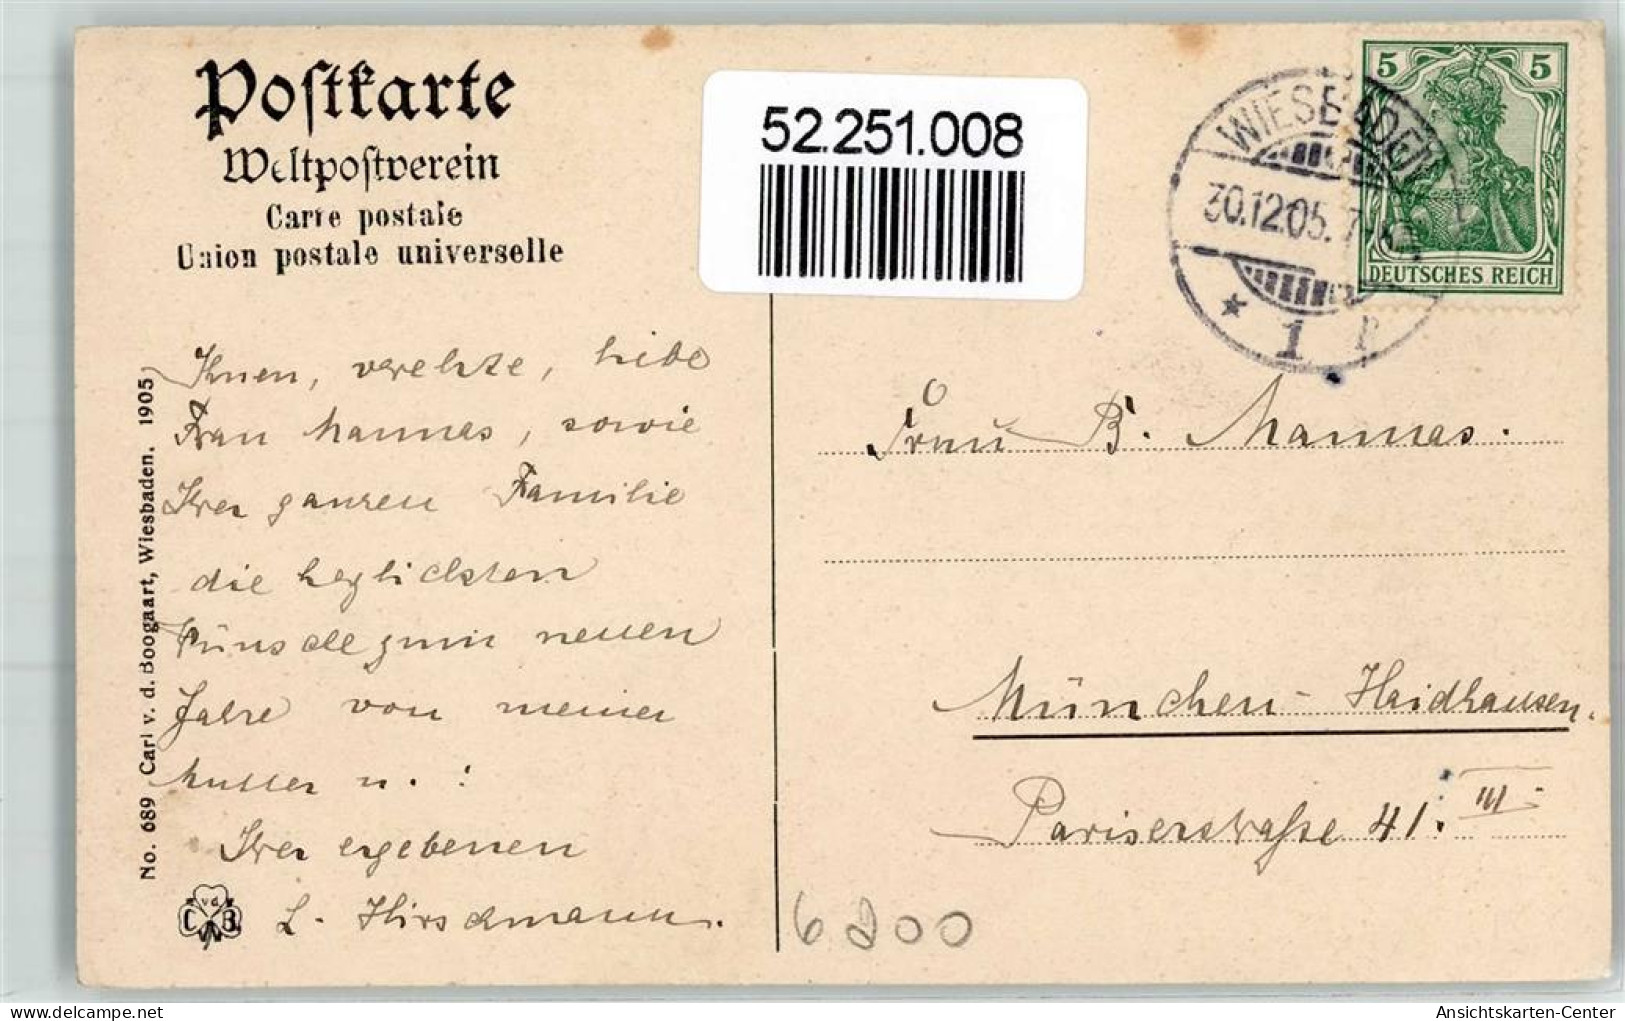 Postkarte
Weltpostverein
Carte postale
Union postale universelle
52.251.008
5 5
DEUTSCHES REICH
WIESBADEN
30.12.05. 7-
* 1
Ihnen, verehrte, liebe
Frau Mannas, sowie
Ihrer ganzen Familie
die herzlichsten
Wünsche zum neuen
Jahre von meiner
Mutter u. :
Ihrer ergebenen
L. Hirschmann.
Frau B. Mannas.
München - Haidhausen.
Pariserstraße 41. III
No. 689 Carl v. d. Boogaart, Wiesbaden. 1905
C vd B
6800
hilfe-max.com
Ansichtskarten-Center